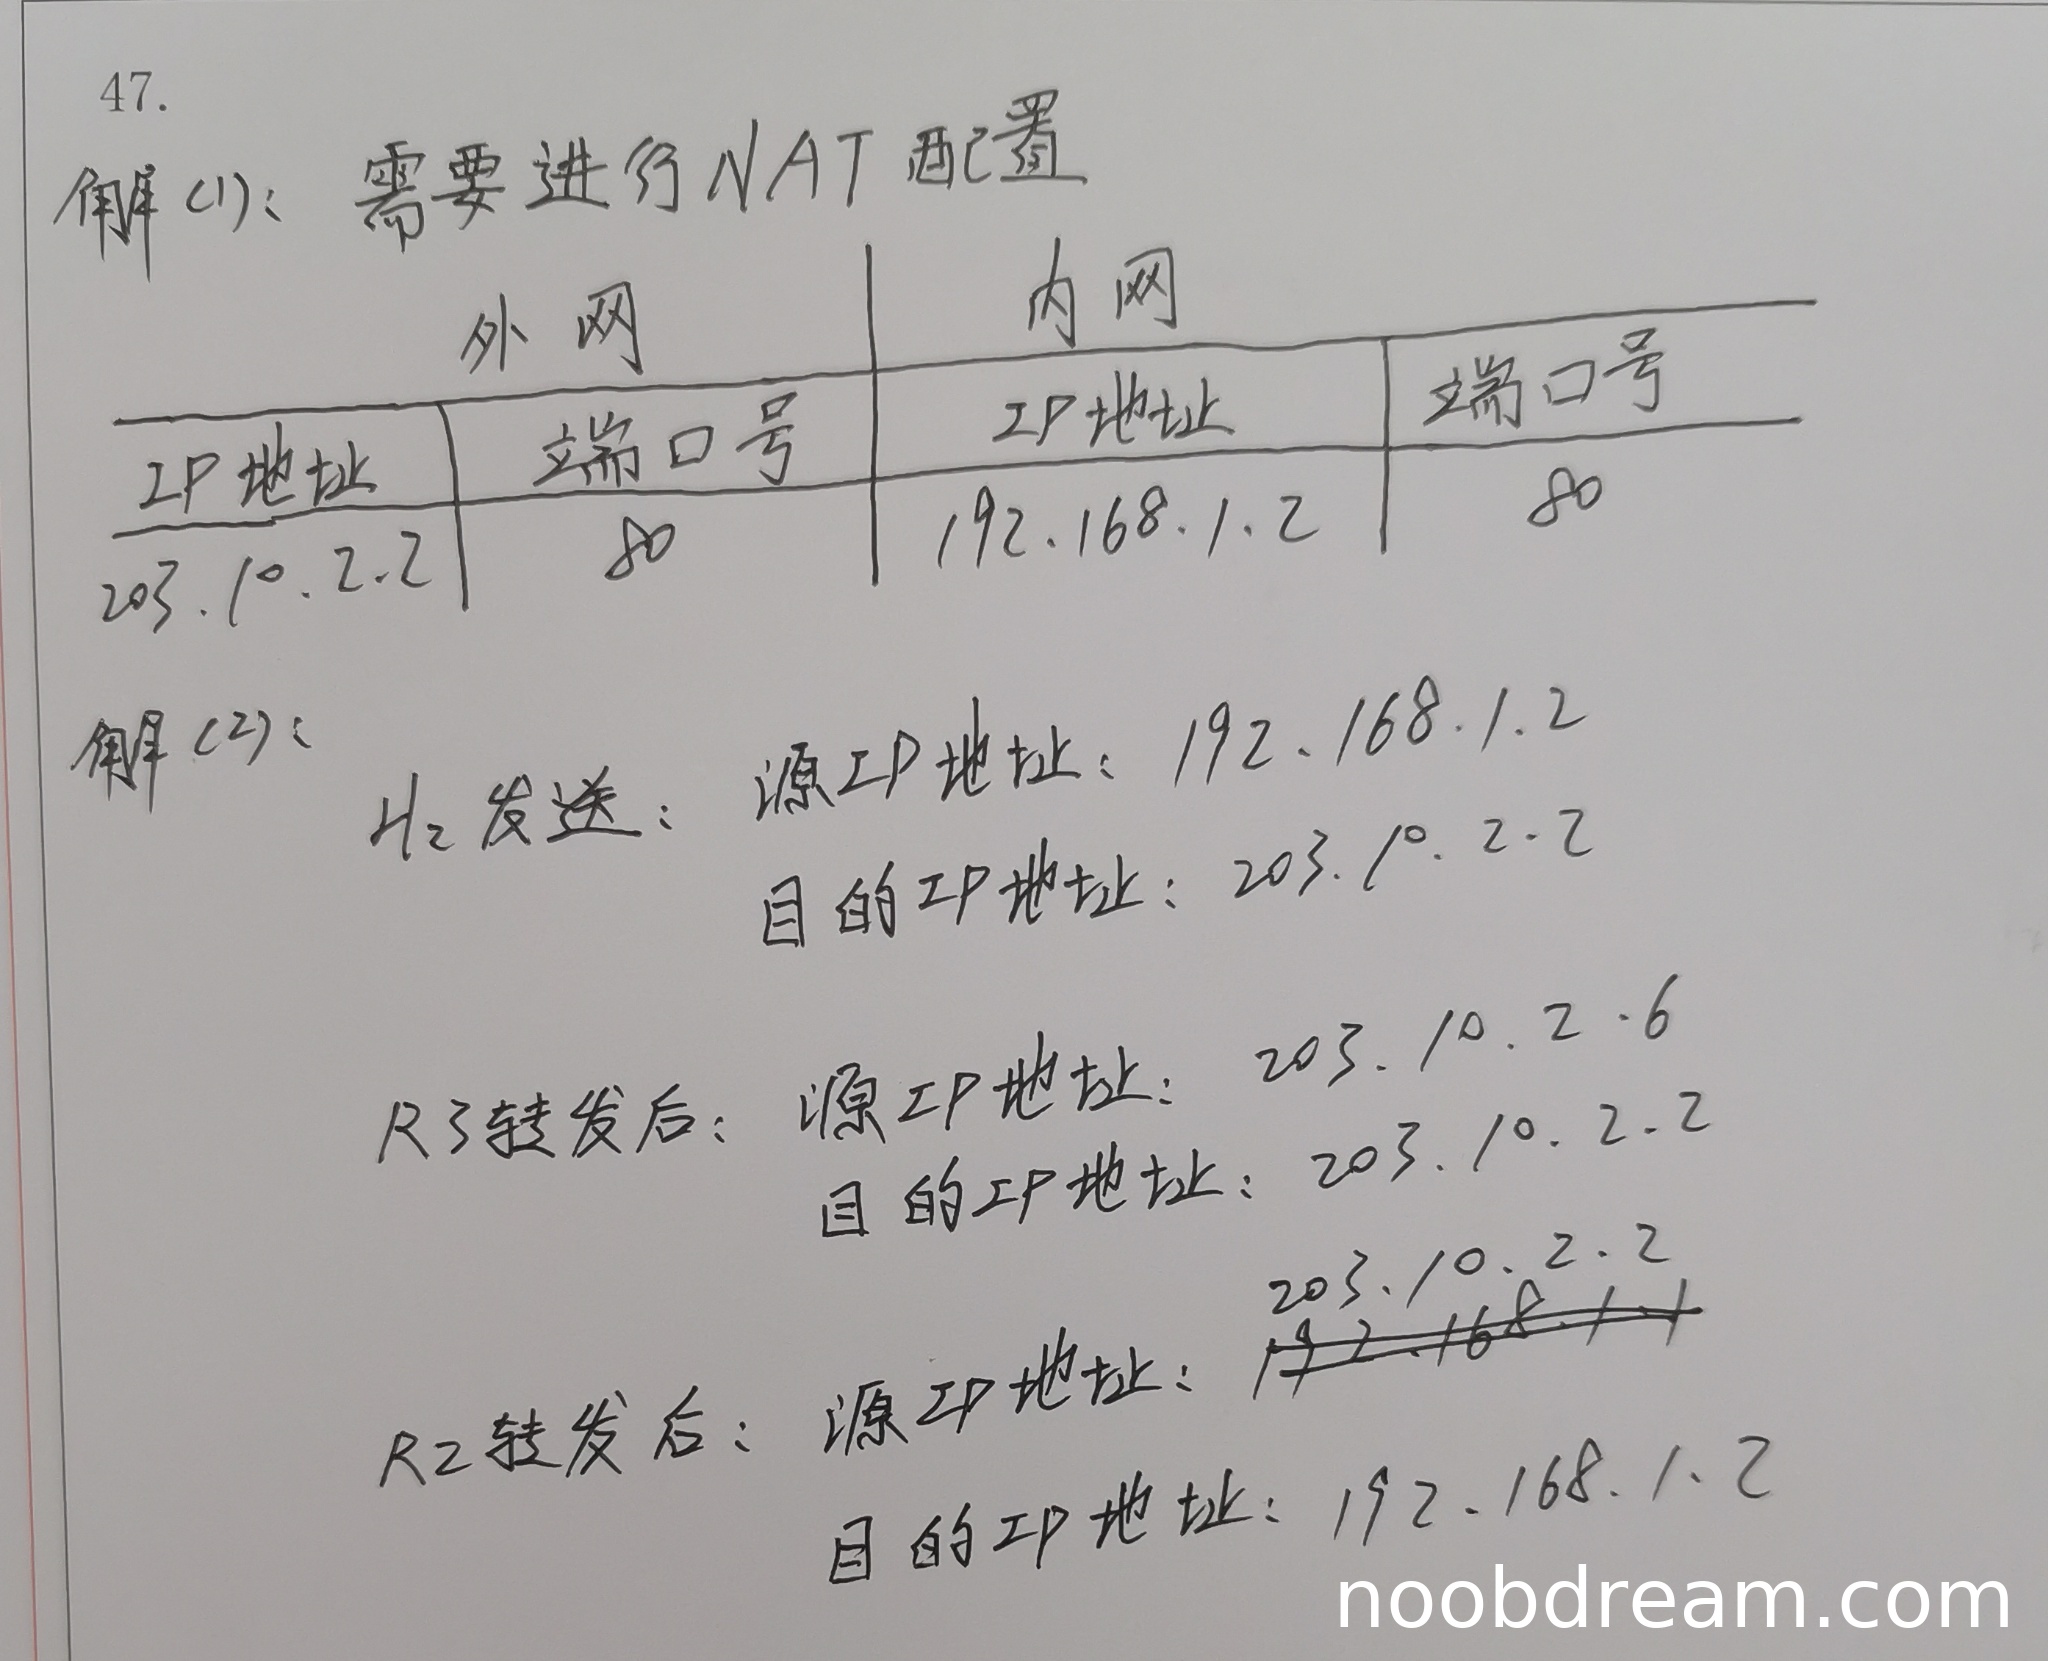 47.
解(1): 需要进行NAT配置
外网 内网
IP地址 端口号 IP地址 端口号
203.10.2.2 80 192.168.1.2 80
解(2):
H2发送: 源IP地址: 192.168.1.2
目的IP地址: 203.10.2.2
R3转发后: 源IP地址: 203.10.2.6
目的IP地址: 203.10.2.2
203.10.2.2
R2转发后: 源IP地址: 192.168.1.1
目的IP地址: 192.168.1.2
noobdream.com